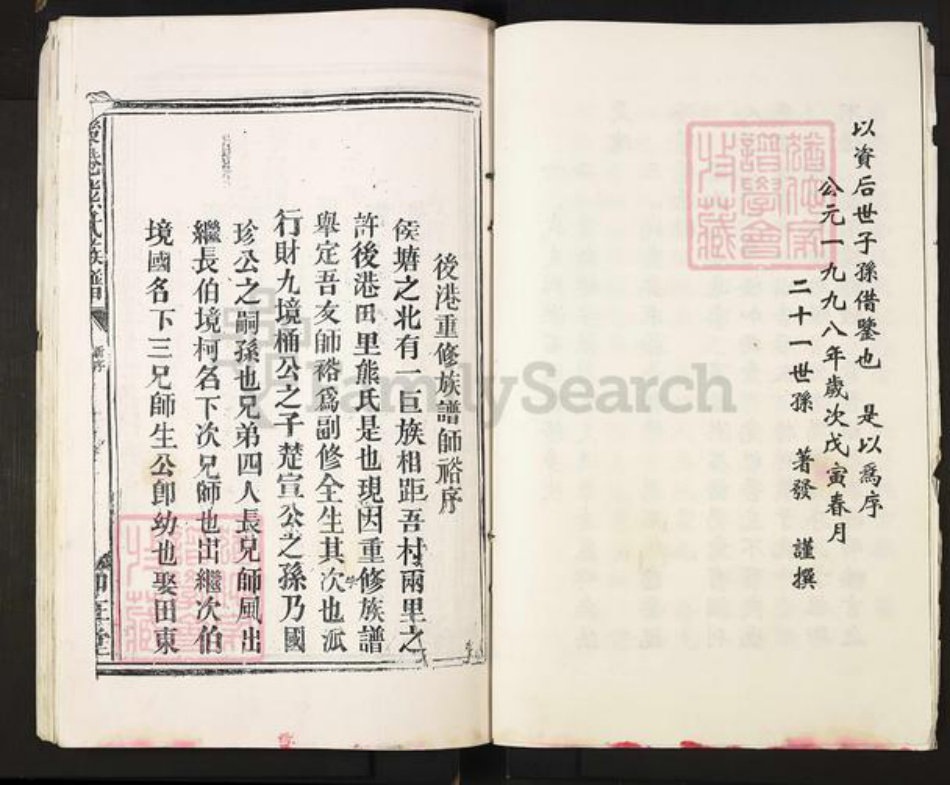 以資后世子孫借鑒也　是以爲序
公元一九九八年歲次戊寅春月
二十一世孫　著發　謹撰
後港重修族譜師裕序
侯塘之北有一巨族相距吾村兩里之
許後港田里熊氏是也現因重修族譜
舉定吾友師裕爲副修全生其次也派
行財九境桶公之子楚宣公之孫乃國
珍公之嗣孫也兄弟四人長兄師風出
繼長伯境柯名下次兄師也出繼次伯
境國名下三兄師生公卽幼也娶田東
族譜
FamilySearch